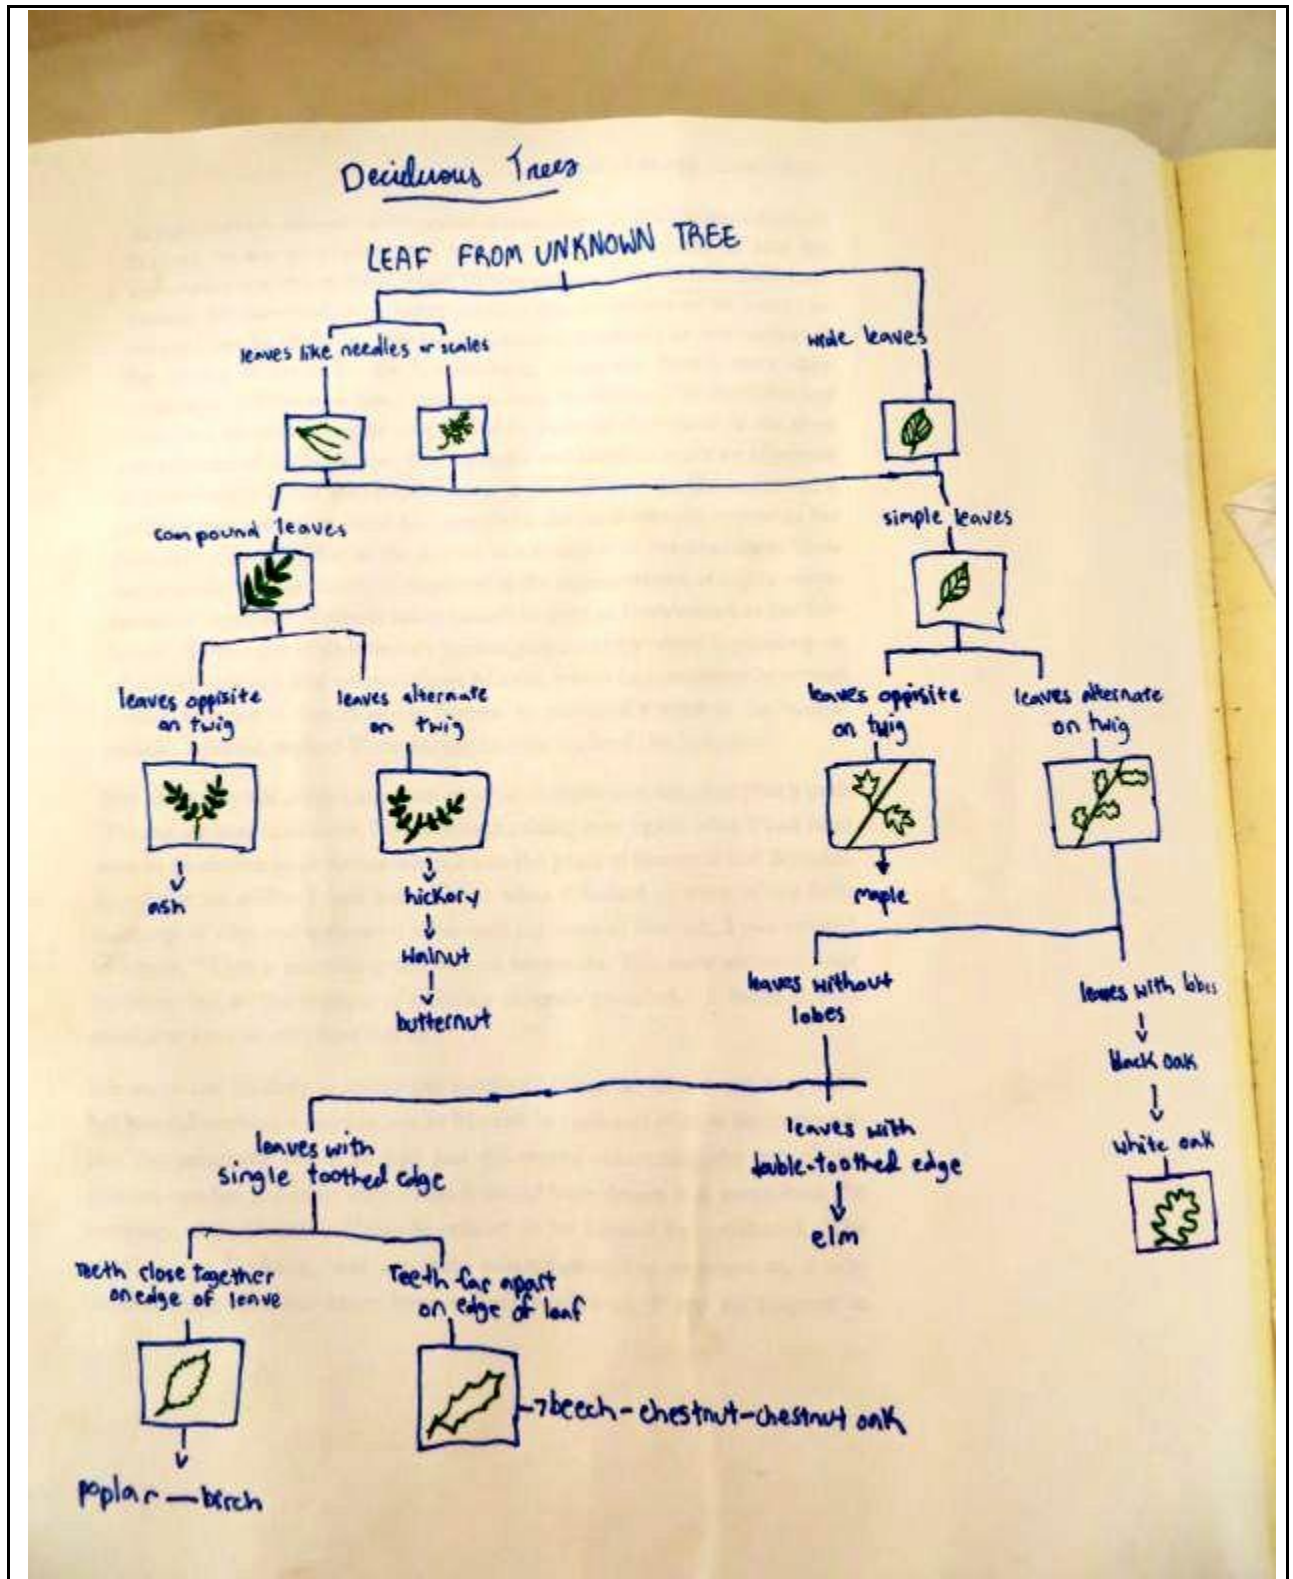 Deciduous Trees
LEAF FROM UNKNOWN TREE
leaves like needles or scales
wide leaves
compound leaves
simple leaves
leaves oppisite
on twig
leaves alternate
on twig
leaves oppisite
on twig
leaves alternate
on twig
ash
hickory
walnut
butternut
maple
leaves without
lobes
leaves with lobes
black oak
white oak
leaves with
single toothed edge
leaves with
double-toothed edge
elm
Teeth close together
on edge of leave
Teeth far apart
on edge of leaf
beech-chestnut-chestnut oak
poplar — birch